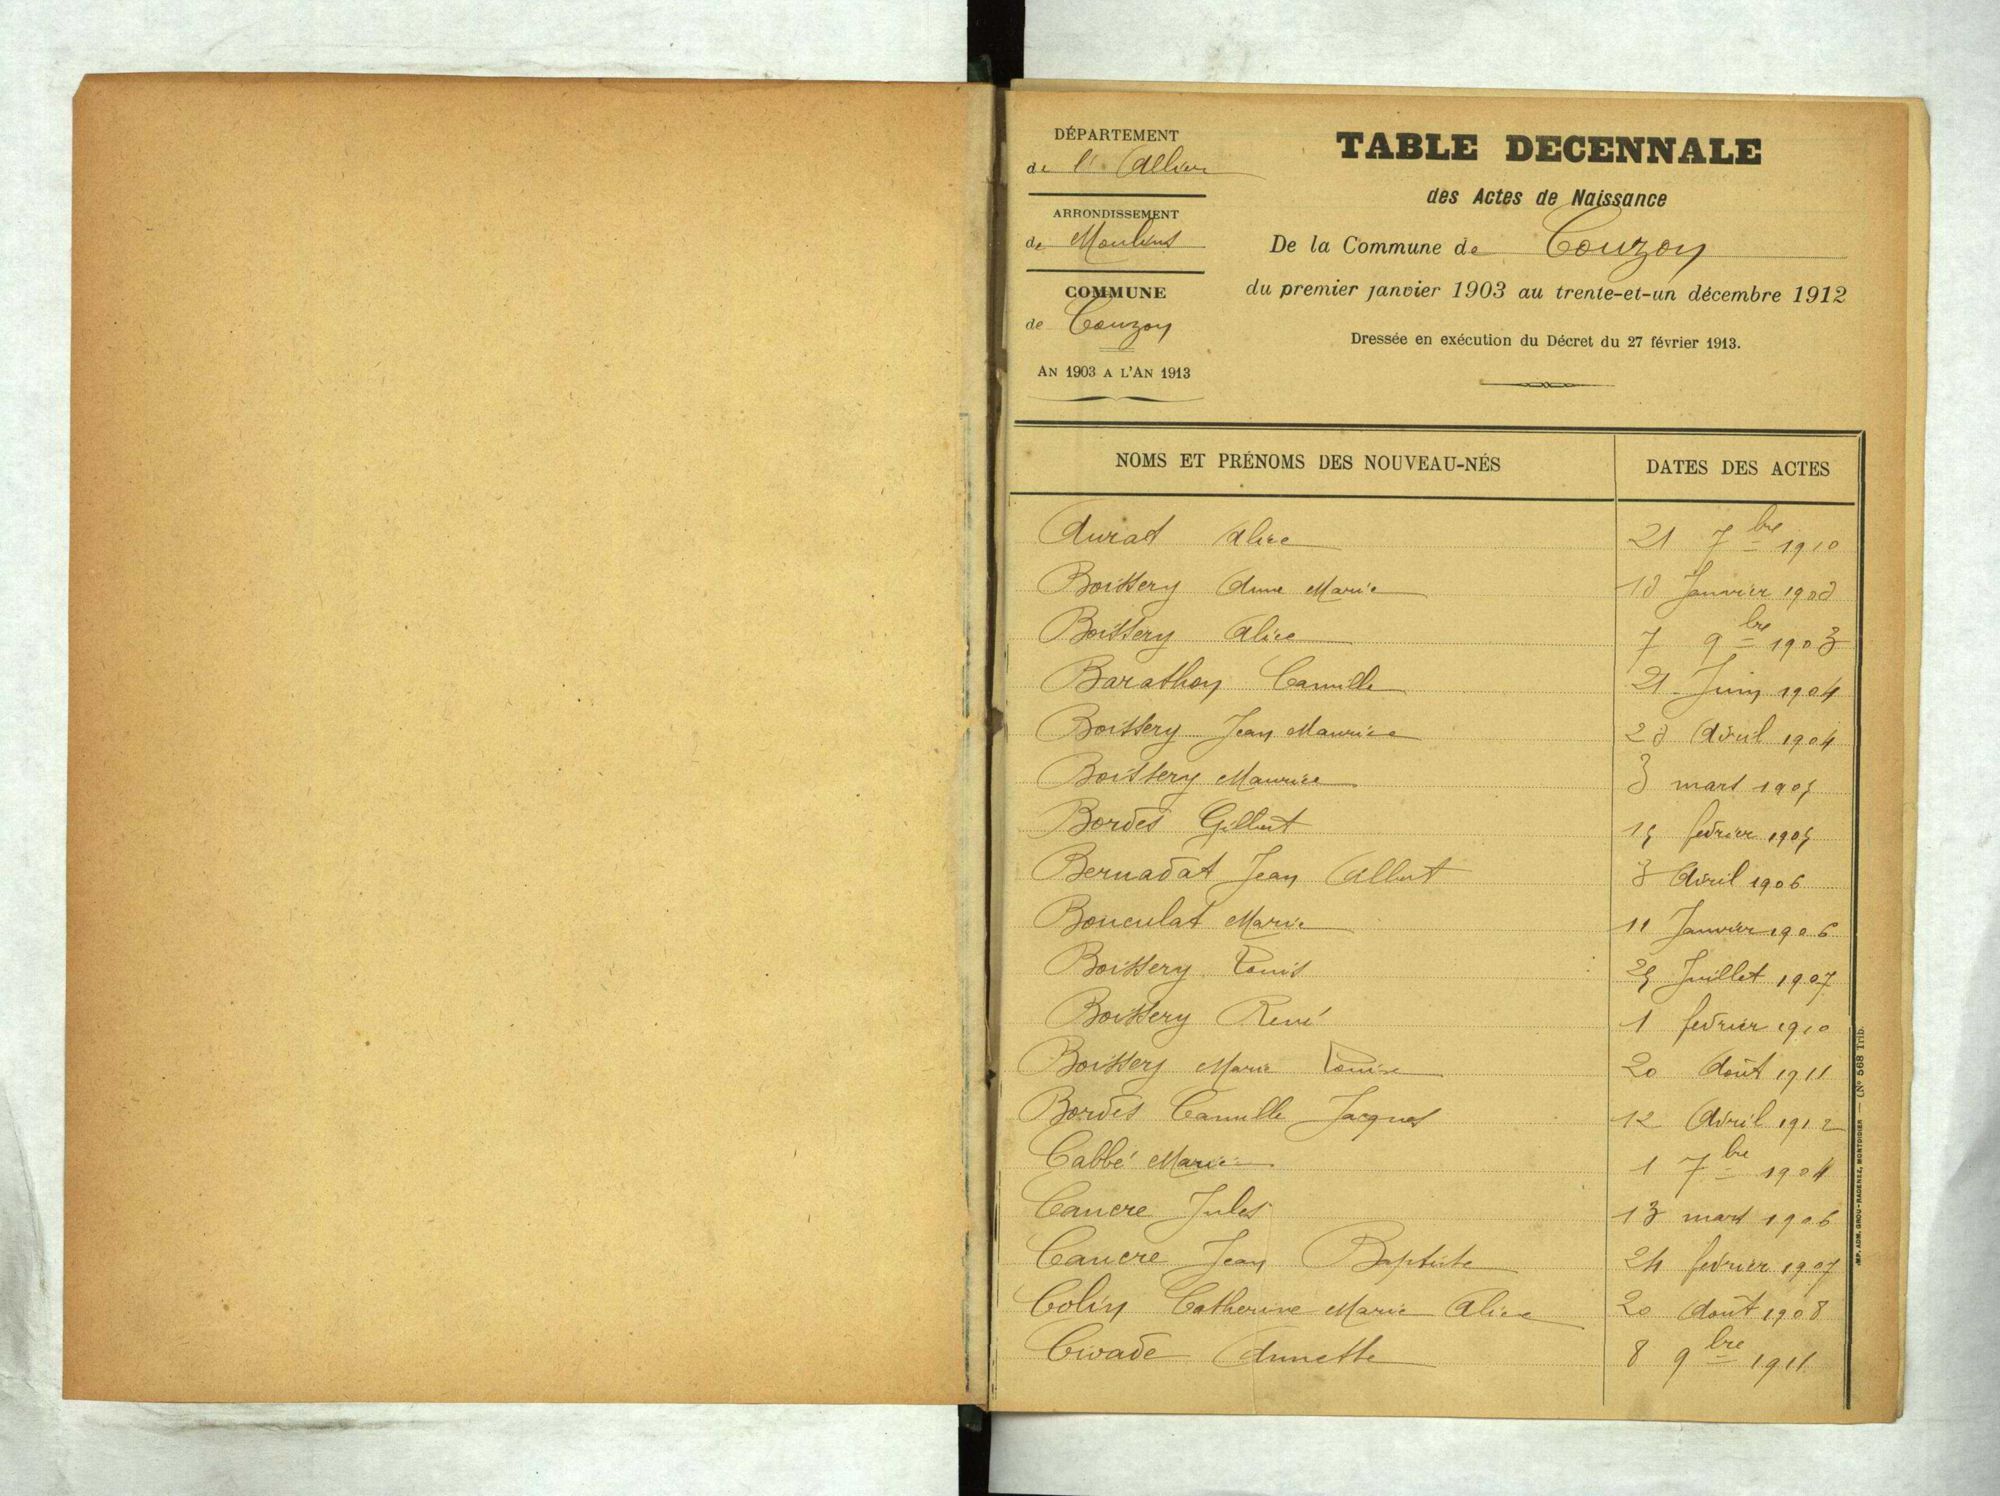 DÉPARTEMENT
de l'Allier
ARRONDISSEMENT
de Moulins
COMMUNE
de Couzon
AN 1903 A L'AN 1913
TABLE DECENNALE
des Actes de Naissance
De la Commune de Couzon
du premier janvier 1903 au trente-et-un décembre 1912
Dressée en exécution du Décret du 27 février 1913.
NOMS ET PRÉNOMS DES NOUVEAU-NÉS DATES DES ACTES
Aurat Alice 21 7bre 1910
Boissery Anne Marie 18 Janvier 1903
Boissery Alice 7 9bre 1903
Barathon Camille 21 Juin 1904
Boissery Jean Maurice 28 Avril 1904
Boissery Maurice 3 mars 1905
Bordes Gilbert 15 février 1905
Bernadat Jean Albert 3 Avril 1906
Bouculat Marie 11 Janvier 1906
Boissery Louis 25 Juillet 1907
Boissery René 1 février 1910
Boissery Marie Louise 20 Août 1911
Bordes Camille Jacques 12 Avril 1912
Cabbé Marie 1 7bre 1904
Cancre Jules 13 mars 1906
Cancre Jean Baptiste 24 février 1907
Colin Catherine Marie Alice 20 Août 1908
Civade Annette 8 9bre 1911
IMP. ADM. GROU-RADENEZ, MONTDIDIER — (N° 568 Trib.